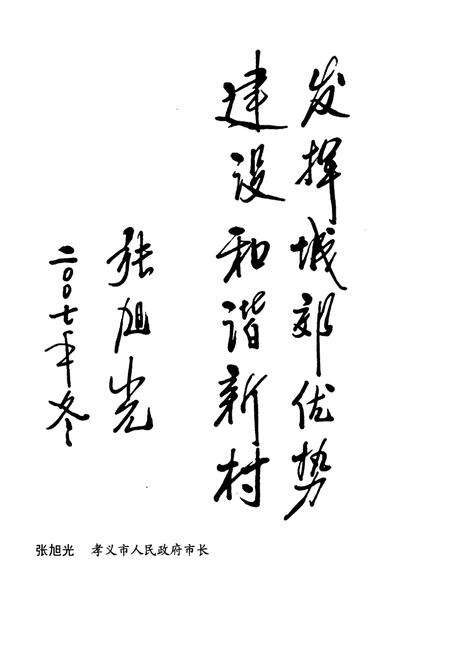 发挥城郊优势
建设和谐新村
张旭光
二〇〇七年冬
张旭光 孝义市人民政府市长